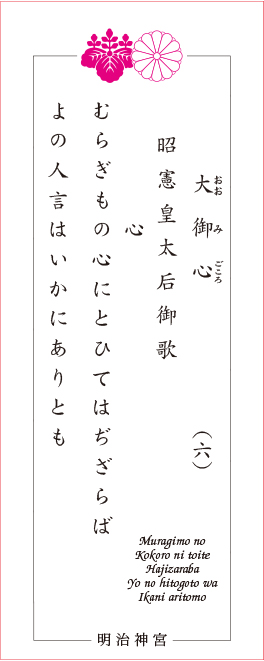 大御心
おおみごころ
(六)
昭憲皇太后御歌
心
むらぎもの心にとひてはぢざらば
よの人言はいかにありとも
Muragimo no
Kokoro ni toite
Hajizaraba
Yo no hitogoto wa
Ikani aritomo
明治神宮